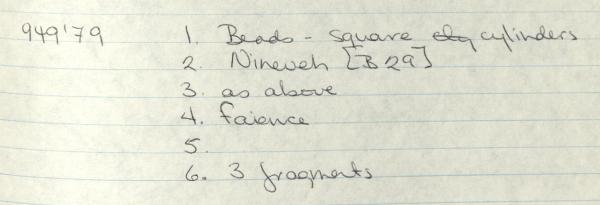 949'79 1. Beads - square cylinders
2. Nineveh [B29]
3. as above
4. faience
5.
6. 3 fragments